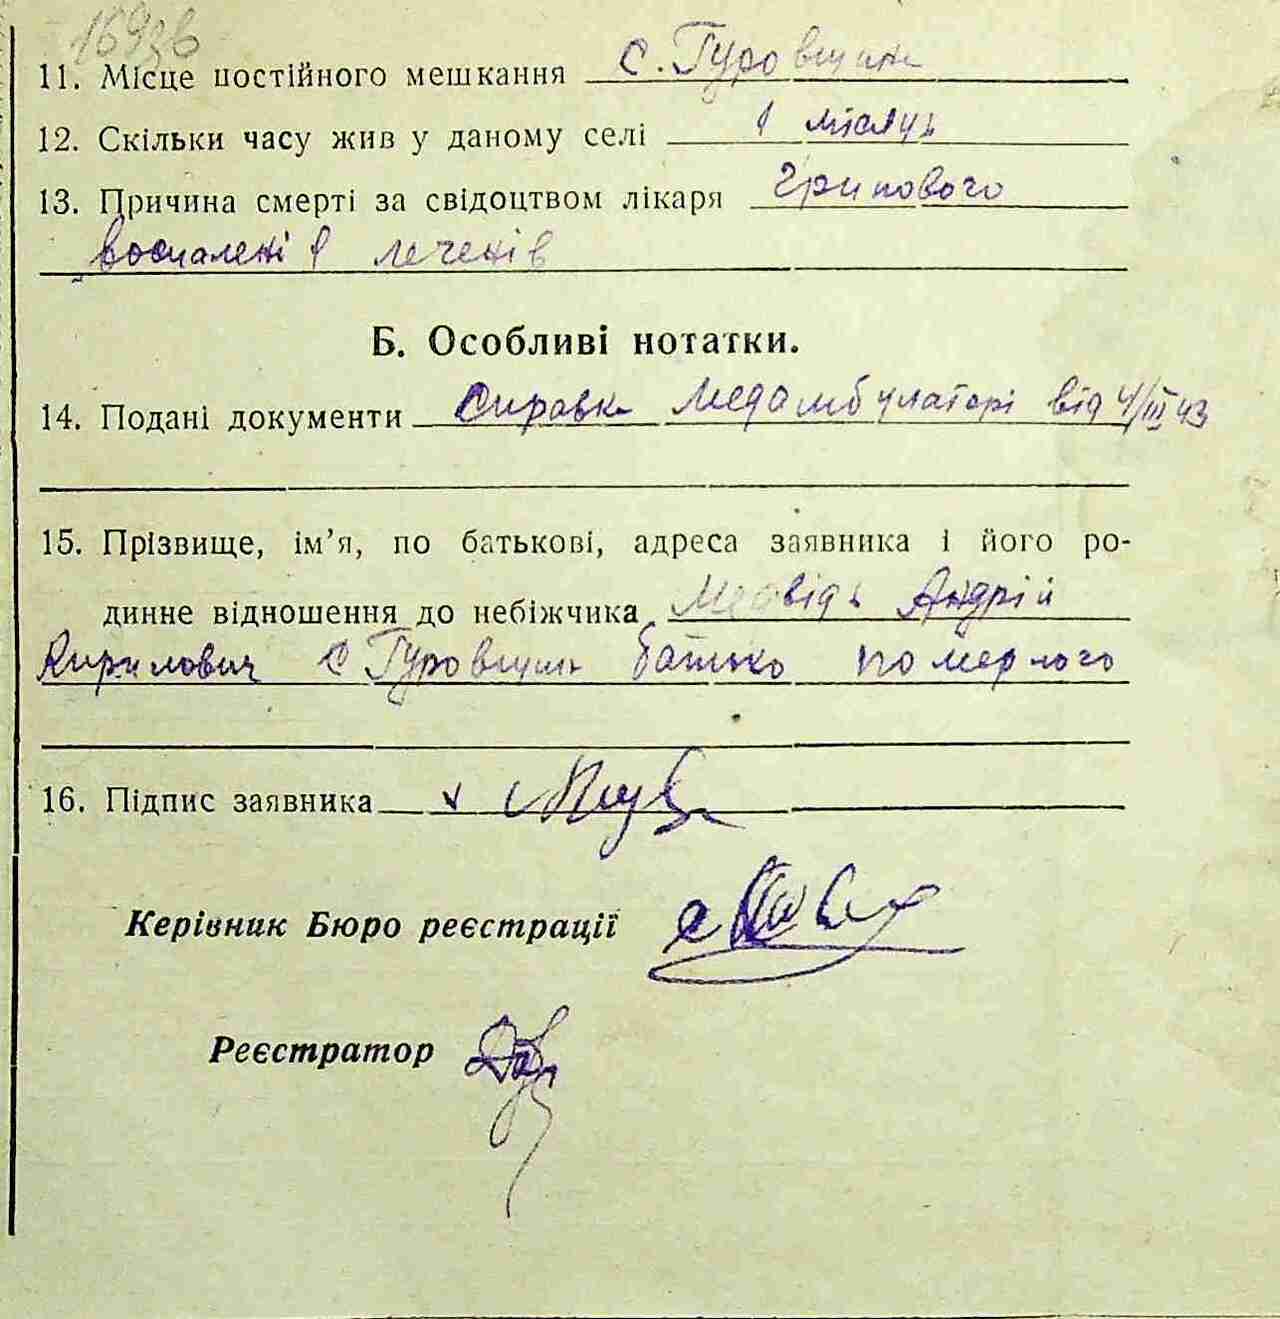 169зв
11. Місце постійного мешкання с. Гуровщина
12. Скільки часу жив у даному селі 1 місяць
13. Причина смерті за свідоцтвом лікаря грипового
воспалені я леченів
Б. Особливі нотатки.
14. Подані документи Справка Медамбулаторі від 4/III 43
15. Прізвище, ім’я, по батькові, адреса заявника і його ро-
динне відношення до небіжчика Медвідь Андрій
Кирилович с Гуровщина батько померлого
16. Підпис заявника
Керівник Бюро реєстрації
Реєстратор